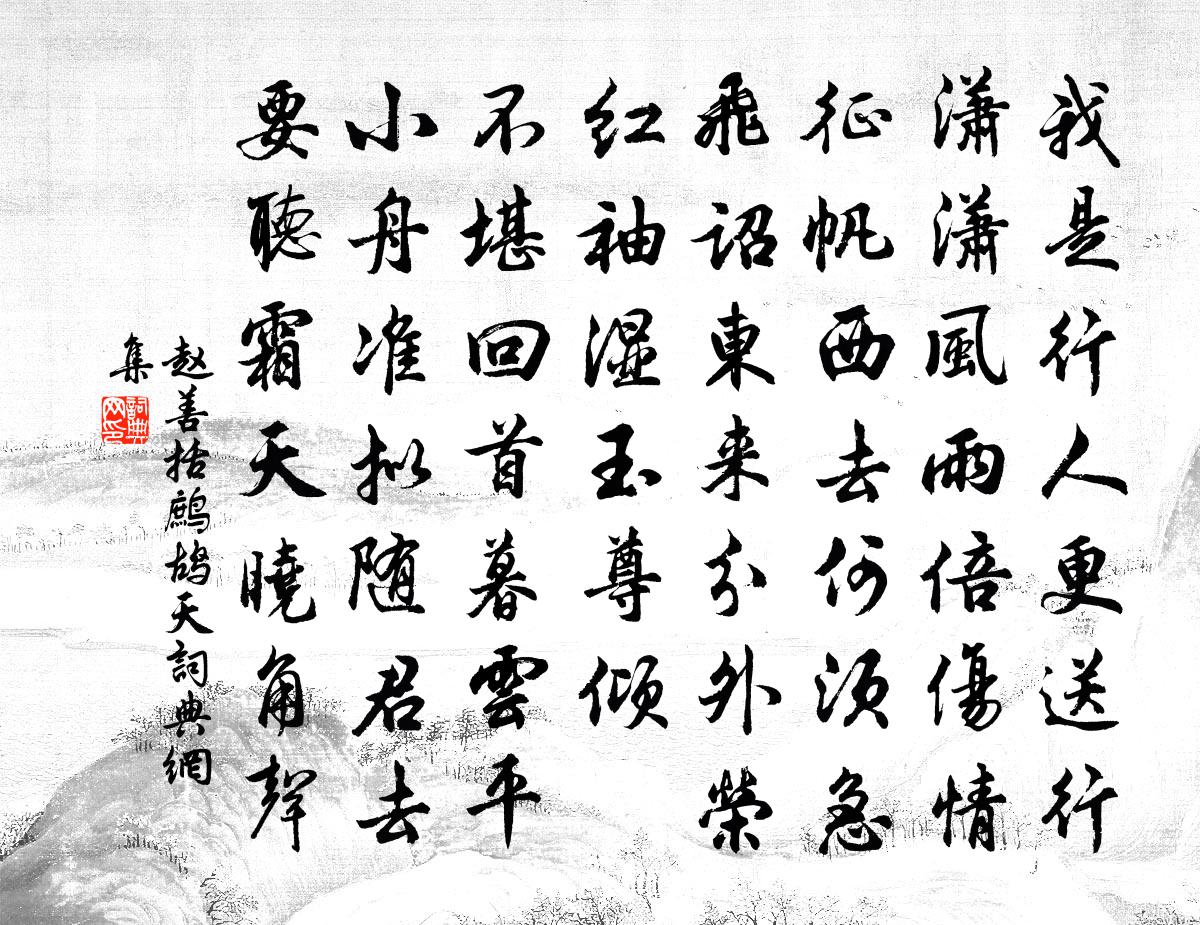 我是行人更送行
潇潇風雨倍傷情
征帆西去何須急
飛詔東来分外榮
红袖濕玉尊傾
不堪回首暮雲平
小舟准拟随君去
要聽霜天曉角聲
赵善括鷓鴣天詞典網
集
詞典网印